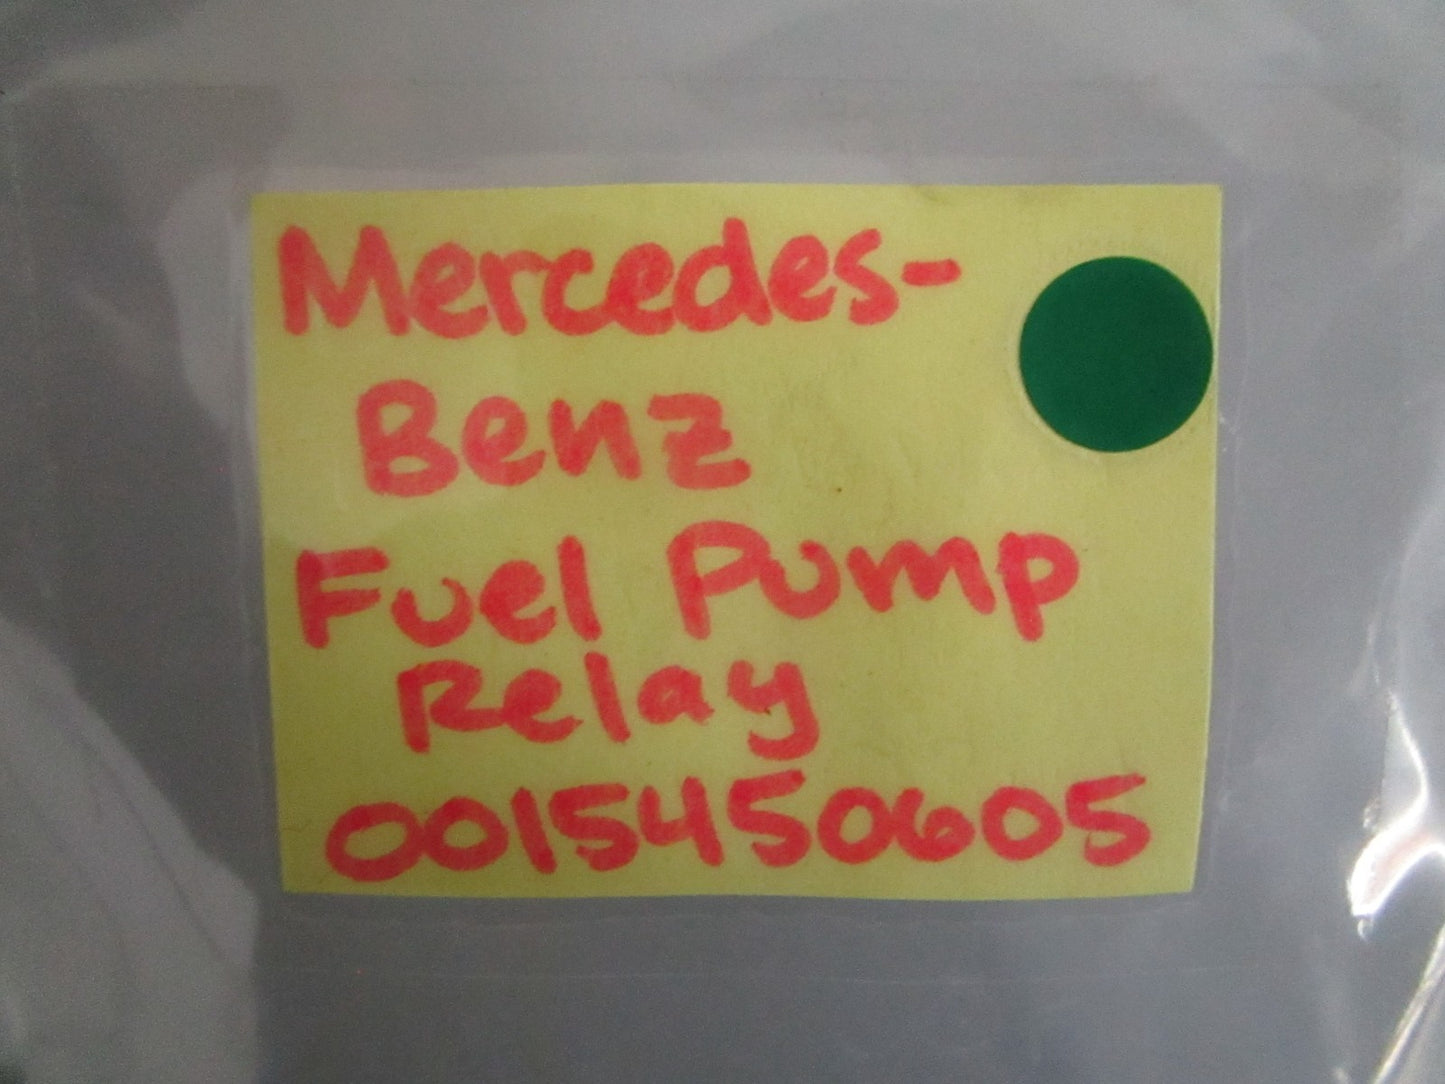 Mercedes-
Benz
Fuel Pump
Relay
0015450605